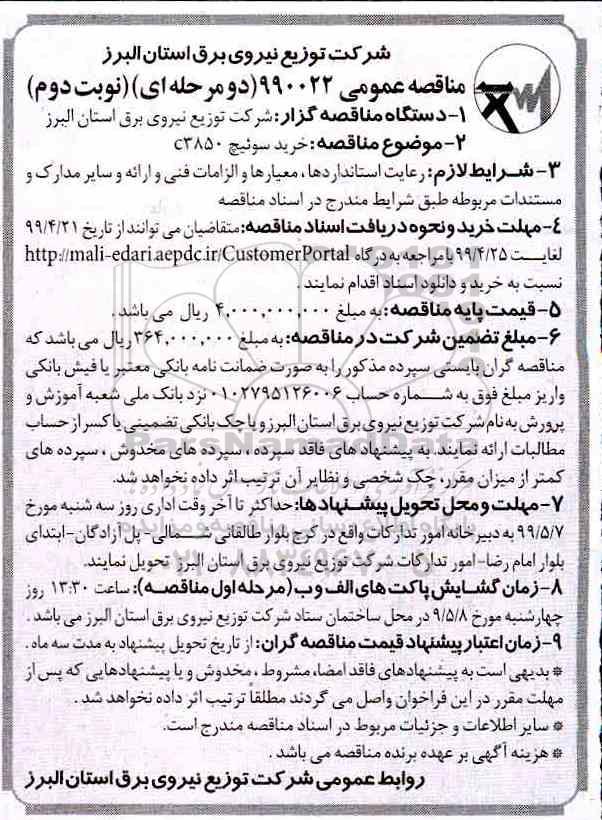 شرکت توزیع نیروی برق استان البرز
مناقصه عمومی ۹۹۰۰۲۲ (دو مرحله ای) (نوبت دوم)
۱- دستگاه مناقصه گزار: شرکت توزیع نیروی برق استان البرز
۲- موضوع مناقصه: خرید سوئیچ c۳۸۵۰
۳- شرایط لازم: رعایت استانداردها، معیارها و الزامات فنی و ارائه و سایر مدارک و
مستندات مربوطه طبق شرایط مندرج در اسناد مناقصه
۴- مهلت خرید و نحوه دریافت اسناد مناقصه: متقاضیان می توانند از تاریخ ۹۹/۴/۲۱
لغایت ۹۹/۴/۲۵ با مراجعه به درگاه http://mali-edari.aepdc.ir/CustomerPortal
نسبت به خرید و دانلود اسناد اقدام نمایند.
۵- قیمت پایه مناقصه: به مبلغ ۴,۰۰۰,۰۰۰,۰۰۰ ریال می باشد.
۶- مبلغ تضمین شرکت در مناقصه: به مبلغ ۳۶۴,۰۰۰,۰۰۰ ریال می باشد که
مناقصه گران بایستی سپرده مذکور را به صورت ضمانت نامه بانکی معتبر یا فیش بانکی
واریز مبلغ فوق به شماره حساب ۰۱۰۲۷۹۵۱۲۶۰۰۶ نزد بانک ملی شعبه آموزش و
پرورش به نام شرکت توزیع نیروی برق استان البرز و یا چک بانکی تضمینی یا کسر از حساب
مطالبات ارائه نمایند. به پیشنهاد های فاقد سپرده، سپرده های مخدوش، سپرده های
کمتر از میزان مقرر، چک شخصی و نظایر آن ترتیب اثر داده نخواهد شد.
۷- مهلت و محل تحویل پیشنهادها: حداکثر تا آخر وقت اداری روز سه شنبه مورخ
۹۹/۵/۷ به دبیرخانه امور تدارکات واقع در کرج بلوار طالقانی شمالی- پل آزادگان- ابتدای
بلوار امام رضا- امور تدارکات شرکت توزیع نیروی برق استان البرز تحویل نمایند.
۸- زمان گشایش پاکت های الف و ب (مرحله اول مناقصه): ساعت ۱۳:۳۰ روز
چهارشنبه مورخ ۹/۵/۸ در محل ساختمان ستاد شرکت توزیع نیروی برق استان البرز می باشد.
۹- زمان اعتبار پیشنهاد قیمت مناقصه گران: از تاریخ تحویل پیشنهاد به مدت سه ماه.
* بدیهی است به پیشنهادهای فاقد امضاء، مشروط، مخدوش و یا پیشنهادهایی که پس از
مهلت مقرر در این فراخوان واصل می گردند مطلقا ترتیب اثر داده نخواهد شد.
* سایر اطلاعات و جزئیات مربوط در اسناد مناقصه مندرج است.
* هزینه آگهی بر عهده برنده مناقصه می باشد.
روابط عمومی شرکت توزیع نیروی برق استان البرز
ParsNamadData